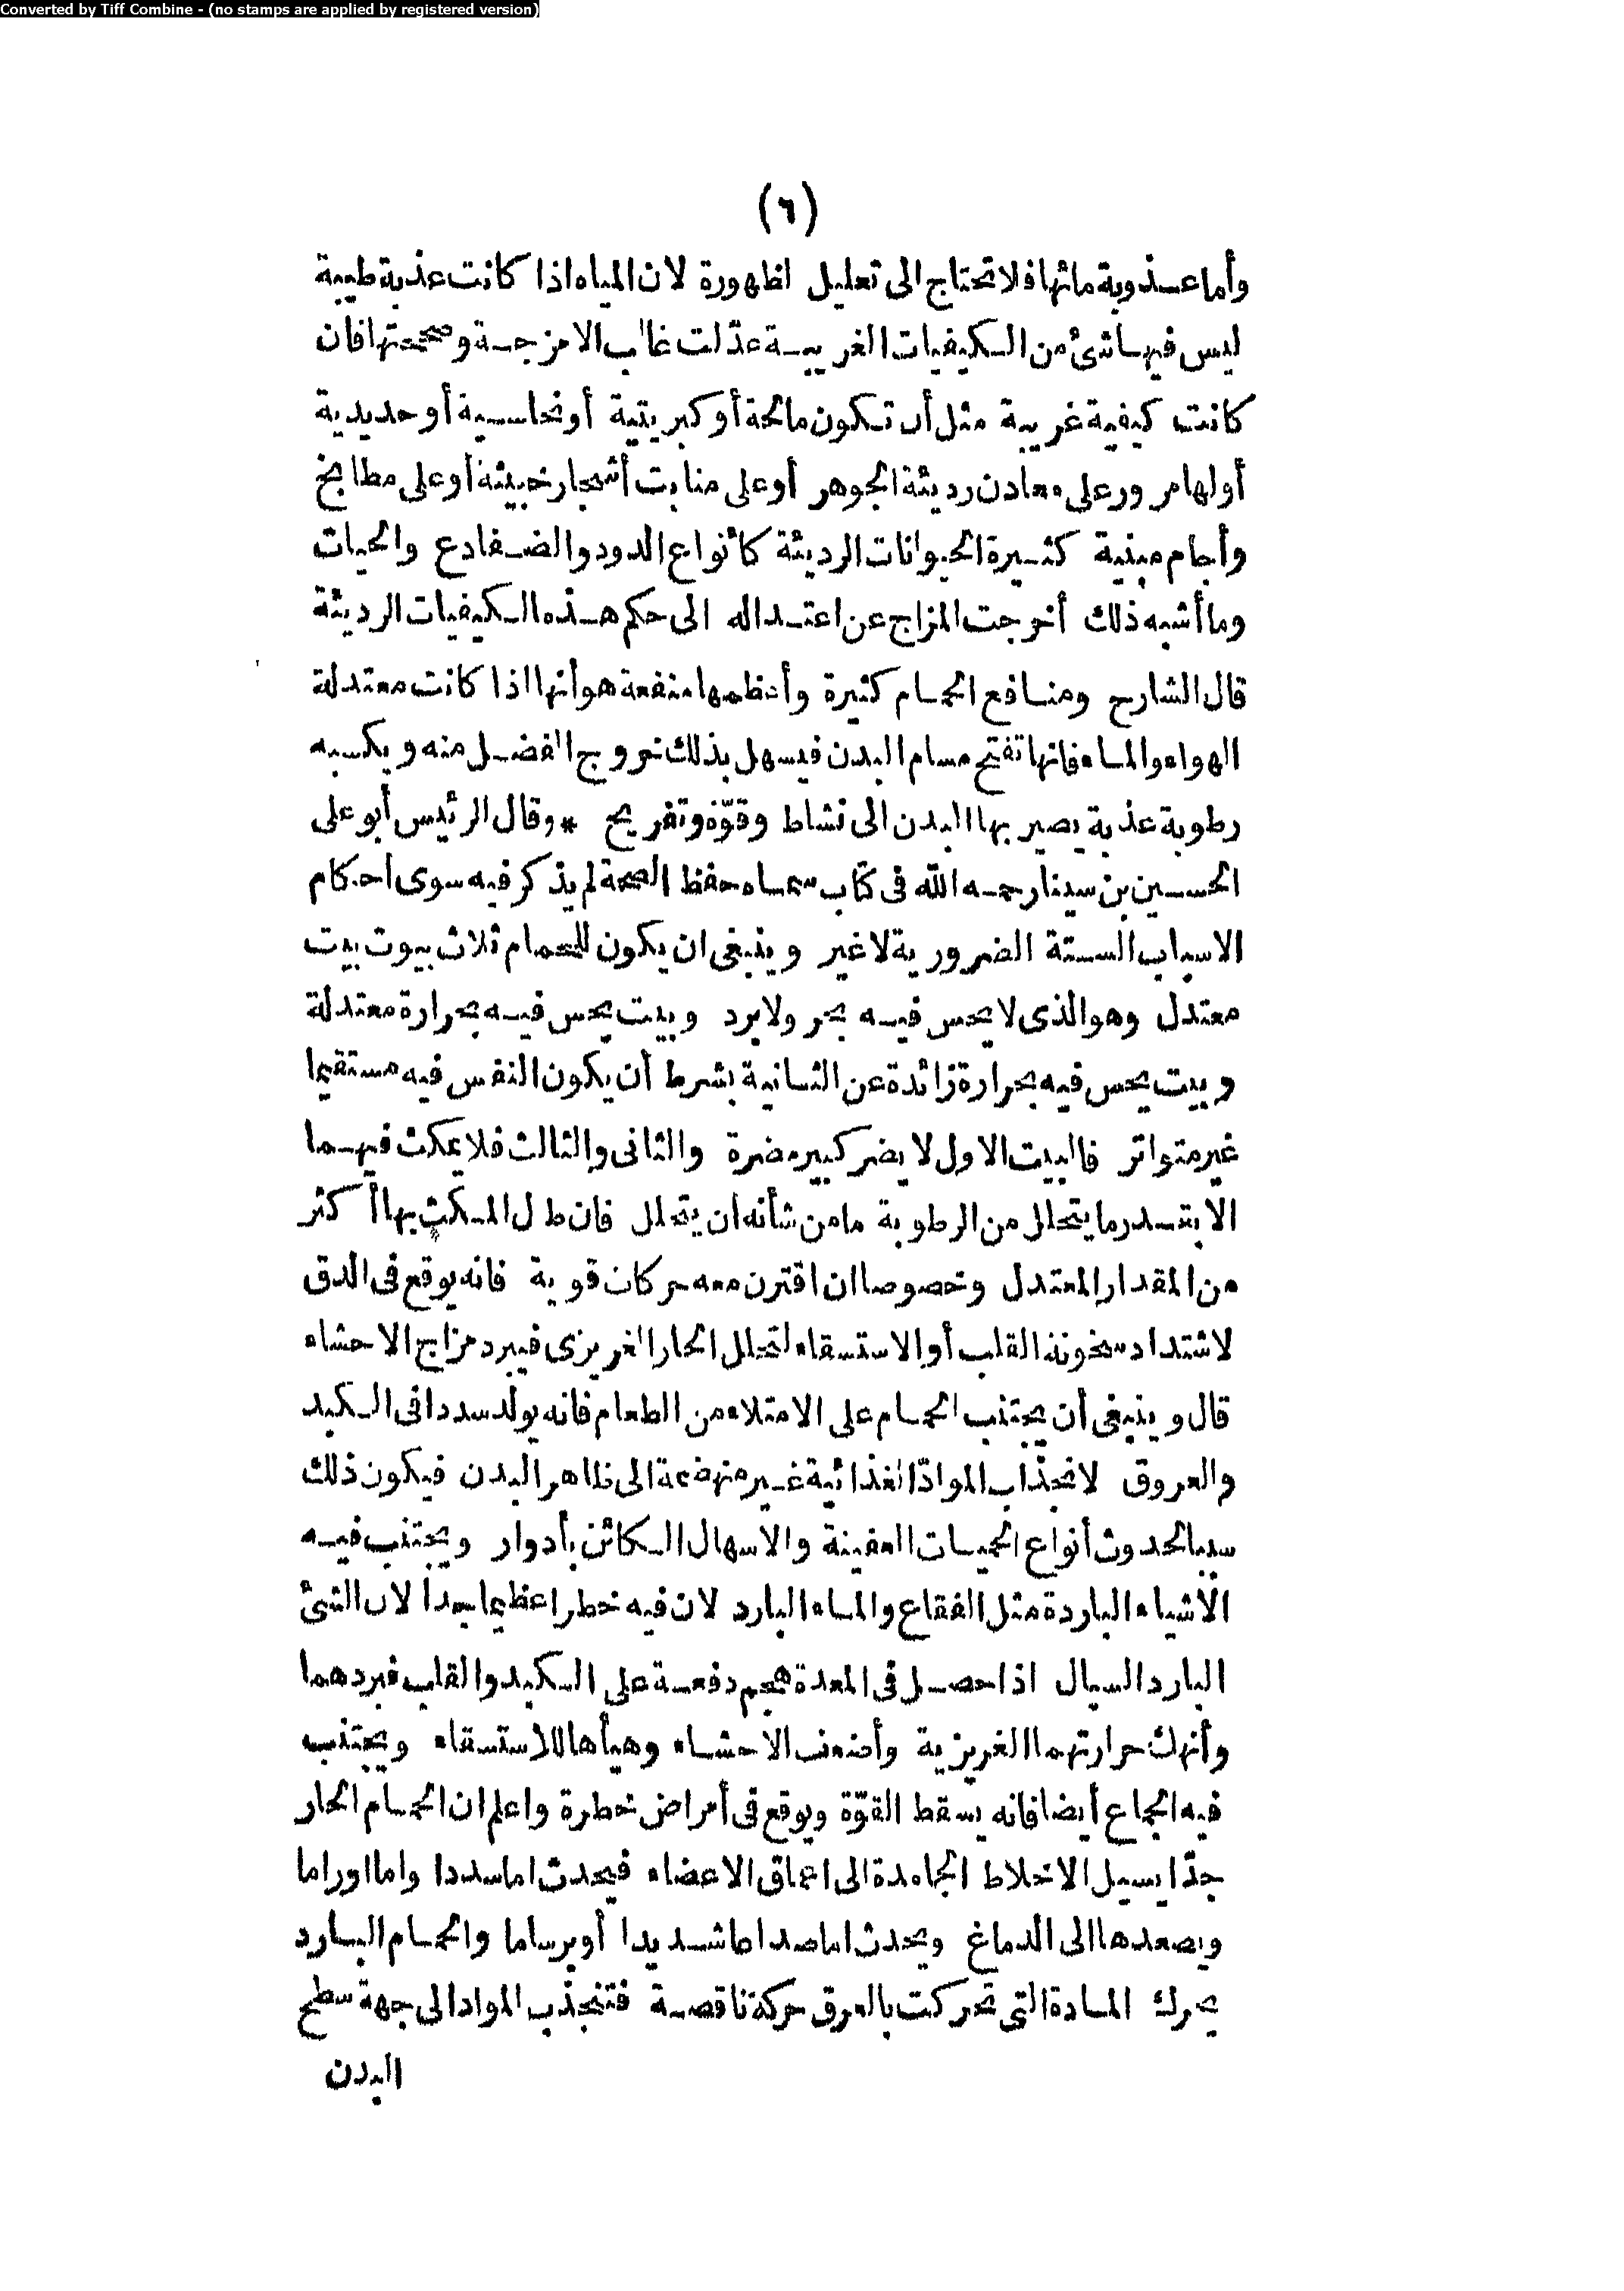 Converted by Tiff Combine - (no stamps are applied by registered version)
(٦)
وأما عذوبة مائها فلا تحتاج الى تعليل لظهورة لان المياه اذا كانت عذبة طيبة
ليس فيها شئ من الكيفيات الغريبة عدّلت غالب الامزجة وصححتها فان
كانت كيفية غريبة مثل أن تكون مالحة أو كبريتية أو نحاسية أو حديدية
أولها مرور على معادن رديئة الجوهر أو على منابت أشجار خبيثة أو على مطابخ
وأجام مبنية كثيرة الحيوانات الرديئة كأنواع الدود والضفادع والحيات
وما أشبه ذلك أخرجت المزاج عن اعتداله الى حكم هذه الكيفيات الرديئة
قال الشارح ومنافع الحمام كثيرة وأعظمها منفعة هو أنها اذا كانت معتدلة
الهواء والماء فانها تفتح مسام البدن فيسهل بذلك خروج الفضل منه ويكسبه
رطوبة عذبة يصير بها البدن الى نشاط وقوّة وتفريح * وقال الرئيس أبو على
الحسين بن سينا رحمه الله فى كتاب سماه حفظ الصحة لم يذكر فيه سوى أحكام
الاسباب الستة الضرورية لا غير وينبغى ان يكون للحمام ثلاث بيوت بيت
معتدل وهو الذى لا يحس فيه بحر ولا برد وبيت يحس فيه بحرارة معتدلة
وبيت يحس فيه بحرارة زائدة عن الثانية بشرط أن يكون النفس فيه مستقيما
غير متواتر فالبيت الاول لا يضر كبير مضرة والثانى والثالث فلا يمكث فيهما
الا بقدر ما يتحلل من الرطوبة ما من شأنه ان يتحلل فان طال المكث بها أكثر
من المقدار المعتدل وخصوصا ان اقترن معه حركات قوية فانه يوقع فى الدق
لاشتداد سخونة القلب أو الاستسقاء لتحلل الحار الغريزى فيبرد مزاج الاحشاء
قال وينبغى أن يجتنب الحمام على الامتلاء من الطعام فانه يولد سددا فى الكبد
والعروق لانجذاب الموادّ الغذائية غير منهضمة الى ظاهر البدن فيكون ذلك
سببا لحدوث أنواع الحميات العفينة والاسهال الكائن بأدوار ويجتنب فيه
الاشياء الباردة مثل الفقاع والماء البارد لان فيه خطرا عظيما جدا لان الشئ
البارد السيال اذا حصل فى المعدة هجم دفعة على الكبد والقلب فبردهما
وأنهك حرارتهما الغريزية وأضعف الاحشاء وهيأها للاستسقاء ويجتنب
فيه الجماع أيضا فانه يسقط القوّة ويوقع فى أمراض خطرة واعلم ان الحمام الحار
جدّا يسيل الاخلاط الجامدة الى اعماق الاعضاء فيحدث اما سددا واما اوراما
ويصعدها الى الدماغ ويحدث اما صداعا شديدا أو برساما والحمام البارد
يحرك المادة التى تحركت بالعرق حركة ناقصة فتنجذب المواد الى جهة سطح
البدن